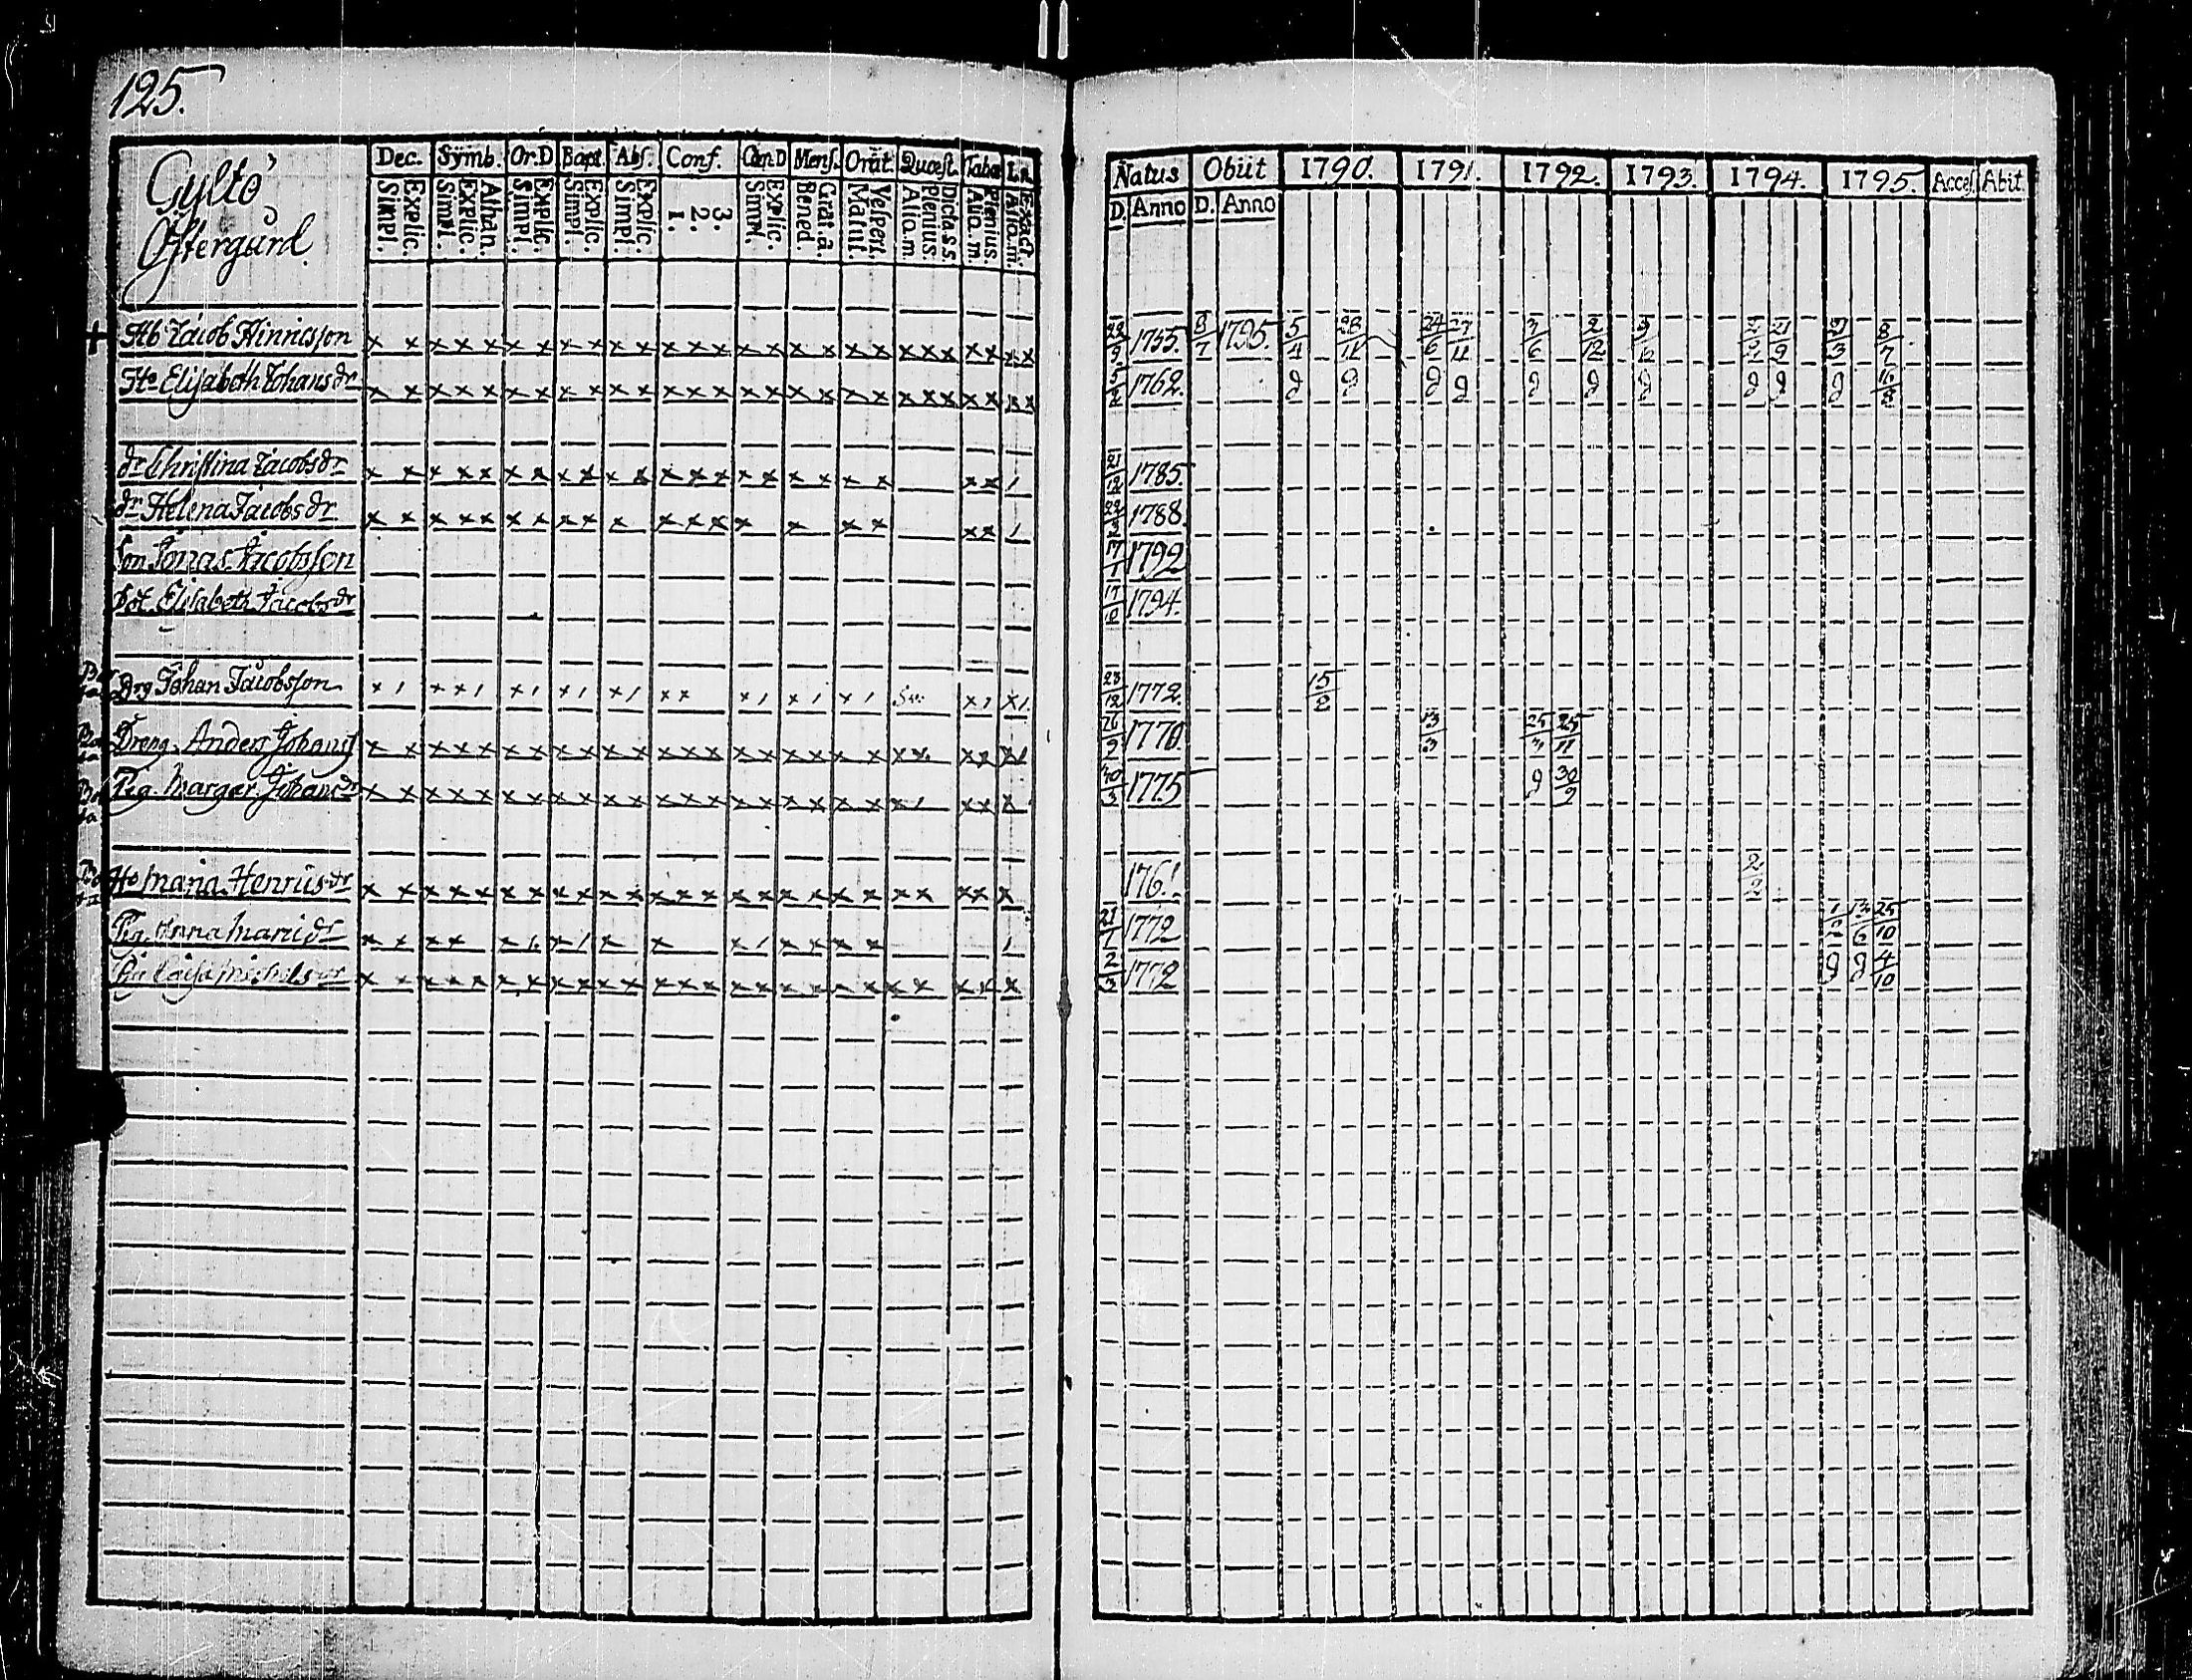 125.
Gyltö
Östergård.
Dec. Symb. Or.D Bapt. Abs. Conf. Cœn.D Mens. Orat. Quæst. Taba
Simpl. Explic. Simpl. Explic. Athan. Simpl. Explic. Simpl. Explic. Simpl. Explic. 1. 2. 3. Simpl. Explic. Bened. Grat. a. Matut. Vespert. Alio.m Plenius. Dicta.s.s Alio.m. Plenius Alio.m. Exact.
Natus Obiit 1790. 1791. 1792. 1793. 1794. 1795. Acces. Abit.
D. Anno D. Anno
+ Hb Jacob Hinricsson x x x x x x x x x x x x x x x x x x x x x x x x x x x 22/9 1755. 8/7 1795. 5/4 28/11 24/6 27/11 2/12 21/9 8/7
Ha Elisabeth Johansdr x x x x x x x x x x x x x x x x x x x x x x x x x x x 1762. 9 9 9 9 9 9 9 9 9 9 16/8
dr Christina Jacobsdr x x x x x x x x x x x x x x x x x x x x x x 1 21/12 1785.
dr Helena Jacobsdr x x x x x x x x x x x x x x x x x x x 1 1788.
son Jonas Jacobsson 1792
Dot. Elisabeth Jacobsdr 17/10 1794.
Drg Johan Jacobsson x 1 x x 1 x 1 x 1 x 1 x x x 1 x 1 x 1 x 1 x 1 23/12 1772. 15/2
Dreng. Anders Johanss x x x x x x x x x x x x x x x x x x x x x x x x 26/9 1770. 13/3 25/3 25/11
Pig. Margar Johansdr x x x x x x x x x x x x x x x x x x x x x 1 x x x 30/3 1775 9 30/9
Ha Maria Henricsdr x x x x x x x x x x x x x x x x x x x x x x x x x 176. 2/2
Pig. Anna x x x x x 1 x 1 x x x 1 x x x x 1 21/7 1772 13/6 25/10
x x x x x x x x x x x x x x x x x x x x x x x x x 2/3 1772 9 9 4/10